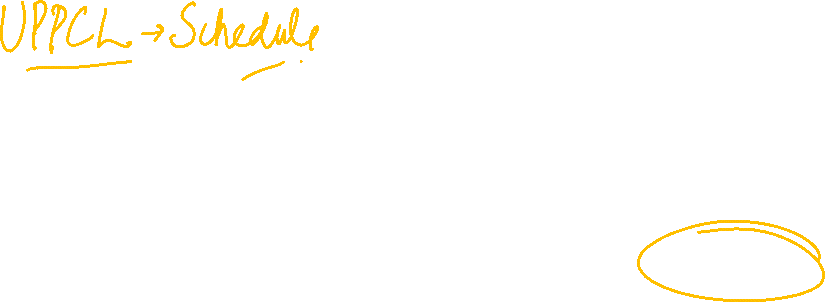 UPPCL → Schedule